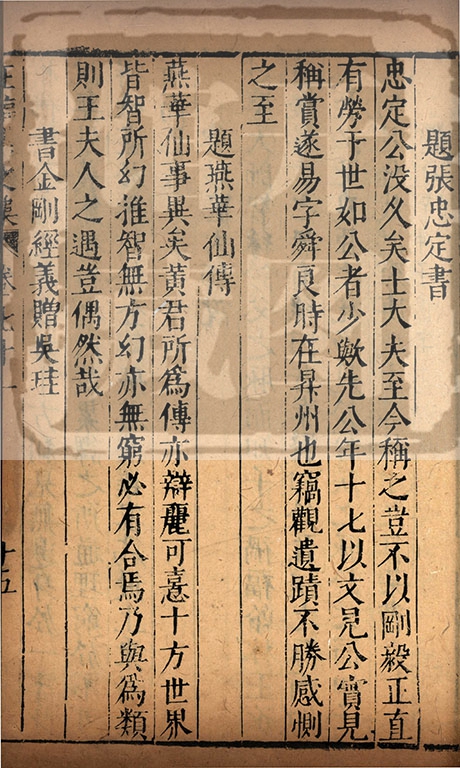 題張忠定書
忠定公没久矣士大夫至今稱之豈不以剛毅正直
有勞于世如公者少歟先公年十七以文見公實見
稱賞遂易字舜良時在昇州也竊觀遺蹟不勝感惻
之至
題燕華仙傳
燕華仙事異矣黄君所爲傳亦辯麗可憙十方世界
皆智所幻推智無方幻亦無窮必有合焉乃與爲類
則王夫人之遇豈偶然哉
書金剛經義贈吳珪
十五